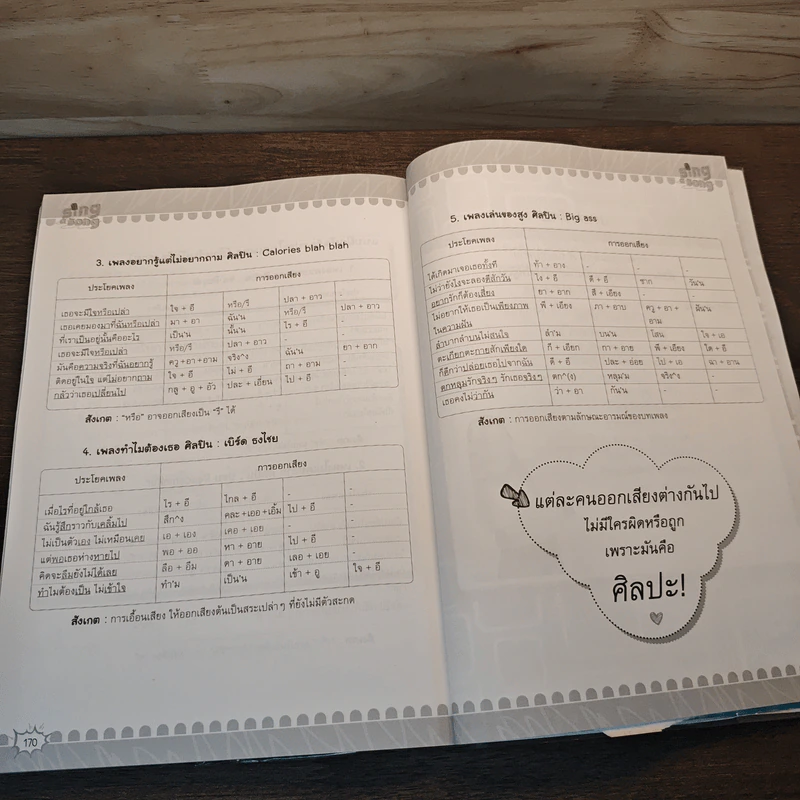 sing a song
3. เพลงอยากรู้แต่ไม่อยากถาม ศิลปิน : Calories blah blah
ประโยคเพลง การออกเสียง
เธอจะมีใจหรือเปล่า ใจ + อี หรือ/รึ ปลา + อาว -
เธอเคยมองมาที่ฉันหรือเปล่า มา + อา ฉัน'น หรือ/รึ ปลา + อาว
ที่เราเป็นอยู่นั้นคืออะไร เป็น'น นั้น'น ไร + อี -
เธอจะมีใจหรือเปล่า หรือ/รึ ปลา + อาว - -
มันคือความจริงที่ฉันอยากรู้ ครู+อา+อาม จริง^ง ฉัน'น ยา + อาก
ติดอยู่ในใจ แต่ไม่อยากถาม ใจ + อี ไม่ + อี ถา + อาม -
กลัวว่าเธอเปลี่ยนไป กลู + อู + อัว ปละ + เอียน ไป + อี -
สังเกต : "หรือ" อาจออกเสียงเป็น "รึ" ได้
4. เพลงทำไมต้องเธอ ศิลปิน : เบิร์ด ธงไชย
ประโยคเพลง การออกเสียง
เมื่อไรที่อยู่ใกล้เธอ ไร + อี ไกล + อี - -
ฉันรู้สึกราวกับเคลิ้มไป สึก^ง คละ +เออ +เอิ้ม ไป + อี -
ไม่เป็นตัวเอง ไม่เหมือนเคย เอ + เอง เคอ + เอย - -
แต่พอเธอห่างหายไป พอ + ออ หา + อาย ไป + อี -
คิดจะลืมยังไม่ได้เลย ลือ + อืม ดา + อาย เลอ + เอย -
ทำไมต้องเป็น ไม่เข้าใจ ทำ'ม เป็น'น เข้า + อู ใจ + อี
สังเกต : การเอื้อนเสียง ให้ออกเสียงต้นเป็นสระเปล่าๆ ที่ยังไม่มีตัวสะกด
170
sing a song
5. เพลงเล่นของสูง ศิลปิน : Big ass
ประโยคเพลง การออกเสียง
ได้เกิดมาเจอเธอทั้งที ท้า + อาง - - -
ไม่ว่ายังไงจะลองดีสักวัน ไง + อี ดี + อี ซาก วัน'น
อยากรักก็ต้องเสี่ยง ยา + อาก สี + เอียง - -
ไม่อยากให้เธอเป็นเพียงภาพ พี + เอียง ภา + อาบ ครู + อา + ฝัน'น
ในความฝัน อาม
ลำบากลำบนไม่สนใจ ลำ'ม บน'น โสน ใจ + เอ
ตะเกียกตะกายสักเพียงใด กี + เอียก กา + อาย พี + เอียง ได + อี
ก็ดีกว่าปล่อยเธอไปจากฉัน ดี + อี ปละ + อ่อย ไป + เอ ฉา + อาน
ตกหลุมรักจริงๆ รักเธอจริงๆ ตก^(ง) หลุม'ม จริง^ง -
เธอคงไม่ว่ากัน ว่า + อา กัน'น - -
สังเกต : การออกเสียงตามลักษณะอารมณ์ของบทเพลง
แต่ละคนออกเสียงต่างกันไป
ไม่มีใครผิดหรือถูก
เพราะมันคือ
ศิลปะ!